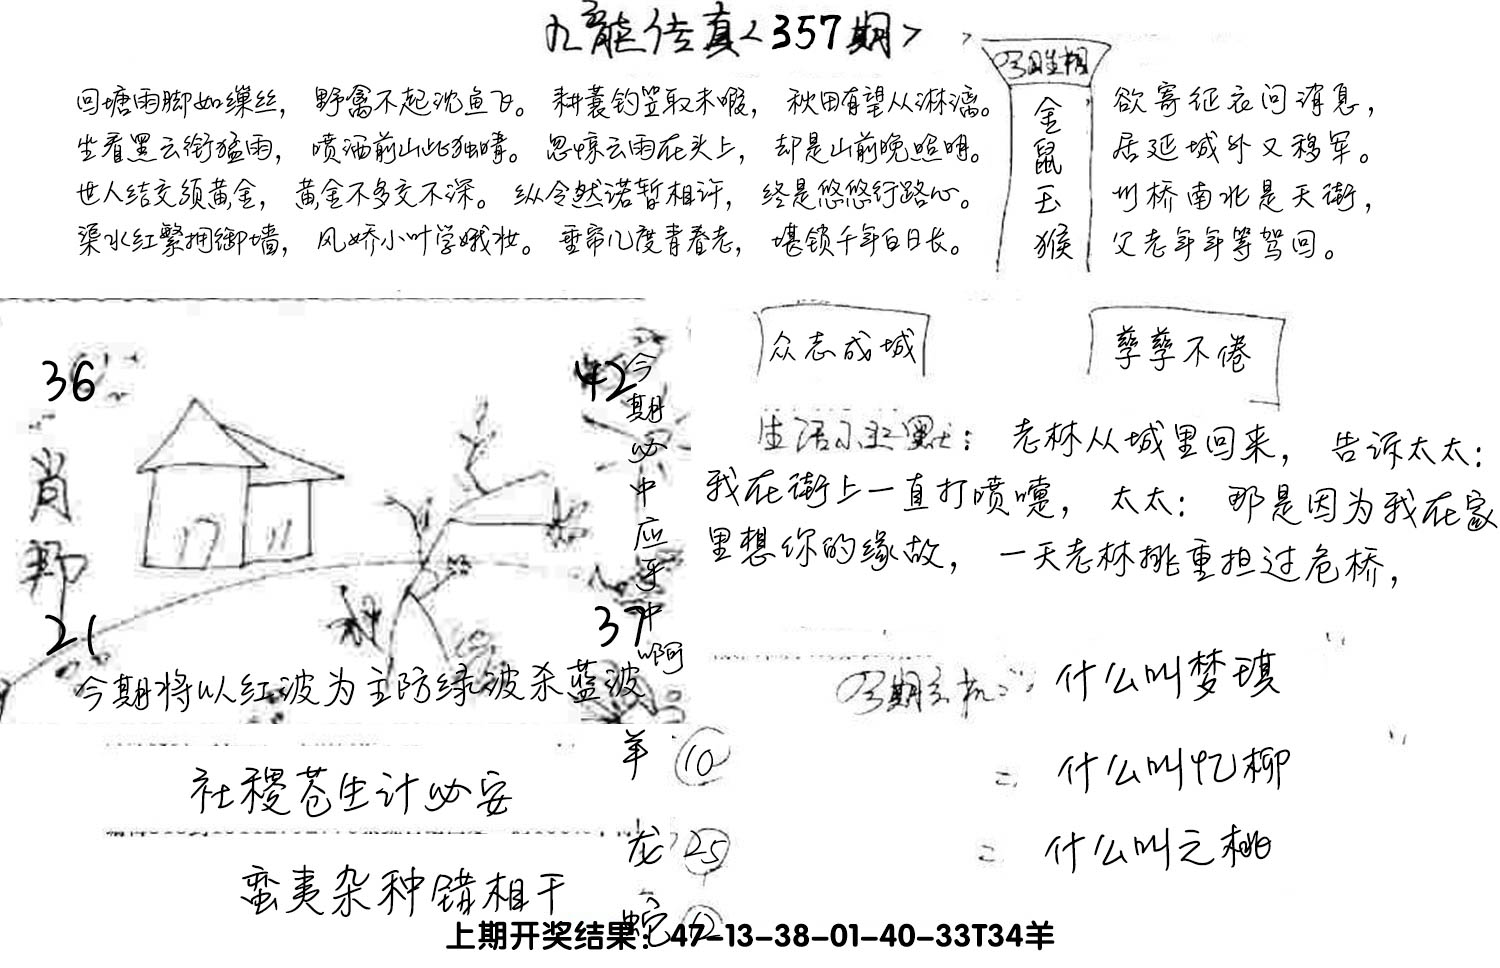 九龙传真<357期>
回塘雨脚如缫丝，野禽不起沈鱼飞。耕蓑钓笠取未暇，秋田有望从淋漓。
坐看黑云衔猛雨，喷洒前山此独晴。忽惊云雨在头上，却是山前晚照明。
世人结交须黄金，黄金不多交不深。纵令然诺暂相许，终是悠悠行路心。
渠水红繁拥御墙，风娇小叶学娥妆。垂帘几度青春老，堪锁千年白日长。
金鼠玉猴
欲寄征衣问消息，
居延城外又移军。
州桥南北是天街，
父老年年等驾回。
36
42
肖
21
37
今期必中应乎中啊
今期将以红波为主防绿波杀蓝波
众志成城
孳孳不倦
生活小幽默：老林从城里回来，告诉太太：
我在街上一直打喷嚏，太太：那是因为我在家
里想你的缘故，一天老林挑重担过危桥，
什么叫梦琪
=什么叫忆柳
=什么叫之桃
社稷苍生计必安
蛮夷杂种错相干
羊 10
龙 25
蛇 12
上期开奖结果：47-13-38-01-40-33T34羊